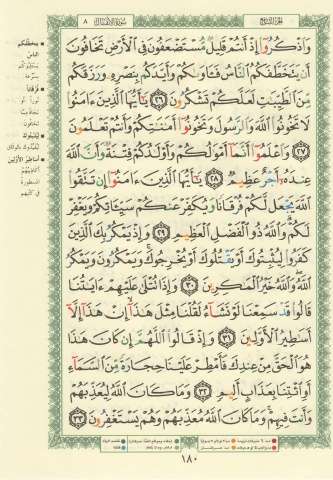 الجزء التاسع
سورة الأنفال ٨
وَاذْكُرُوا إِذْ أَنتُمْ قَلِيلٌ مُّسْتَضْعَفُونَ فِي الْأَرْضِ تَخَافُونَ
أَن يَتَخَطَّفَكُمُ النَّاسُ فَآوَاكُمْ وَأَيَّدَكُم بِنَصْرِهِ وَرَزَقَكُم
مِّنَ الطَّيِّبَاتِ لَعَلَّكُمْ تَشْكُرُونَ ٢٦ يَا أَيُّهَا الَّذِينَ آمَنُوا
لَا تَخُونُوا اللَّهَ وَالرَّسُولَ وَتَخُونُوا أَمَانَاتِكُمْ وَأَنتُمْ تَعْلَمُونَ
٢٧ وَاعْلَمُوا أَنَّمَا أَمْوَالُكُمْ وَأَوْلَادُكُمْ فِتْنَةٌ وَأَنَّ اللَّهَ
عِندَهُ أَجْرٌ عَظِيمٌ ٢٨ يَا أَيُّهَا الَّذِينَ آمَنُوا إِن تَتَّقُوا
اللَّهَ يَجْعَل لَّكُمْ فُرْقَانًا وَيُكَفِّرْ عَنكُمْ سَيِّئَاتِكُمْ وَيَغْفِرْ
لَكُمْ وَاللَّهُ ذُو الْفَضْلِ الْعَظِيمِ ٢٩ وَإِذْ يَمْكُرُ بِكَ الَّذِينَ
كَفَرُوا لِيُثْبِتُوكَ أَوْ يَقْتُلُوكَ أَوْ يُخْرِجُوكَ وَيَمْكُرُونَ وَيَمْكُرُ
اللَّهُ وَاللَّهُ خَيْرُ الْمَاكِرِينَ ٣٠ وَإِذَا تُتْلَىٰ عَلَيْهِمْ آيَاتُنَا
قَالُوا قَدْ سَمِعْنَا لَوْ نَشَاءُ لَقُلْنَا مِثْلَ هَٰذَا إِنْ هَٰذَا إِلَّا
أَسَاطِيرُ الْأَوَّلِينَ ٣١ وَإِذْ قَالُوا اللَّهُمَّ إِن كَانَ هَٰذَا
هُوَ الْحَقَّ مِنْ عِندِكَ فَأَمْطِرْ عَلَيْنَا حِجَارَةً مِّنَ السَّمَاءِ
أَوِ ائْتِنَا بِعَذَابٍ أَلِيمٍ ٣٢ وَمَا كَانَ اللَّهُ لِيُعَذِّبَهُمْ
وَأَنتَ فِيهِمْ وَمَا كَانَ اللَّهُ مُعَذِّبَهُمْ وَهُمْ يَسْتَغْفِرُونَ ٣٣
١٨٠
يتخطفكم
الناس
يستلبوكم
بسرعة
فرقانا
ليثبتوك
أساطير الأولين
أكاذيبهم
المسطورة
في كتبهم